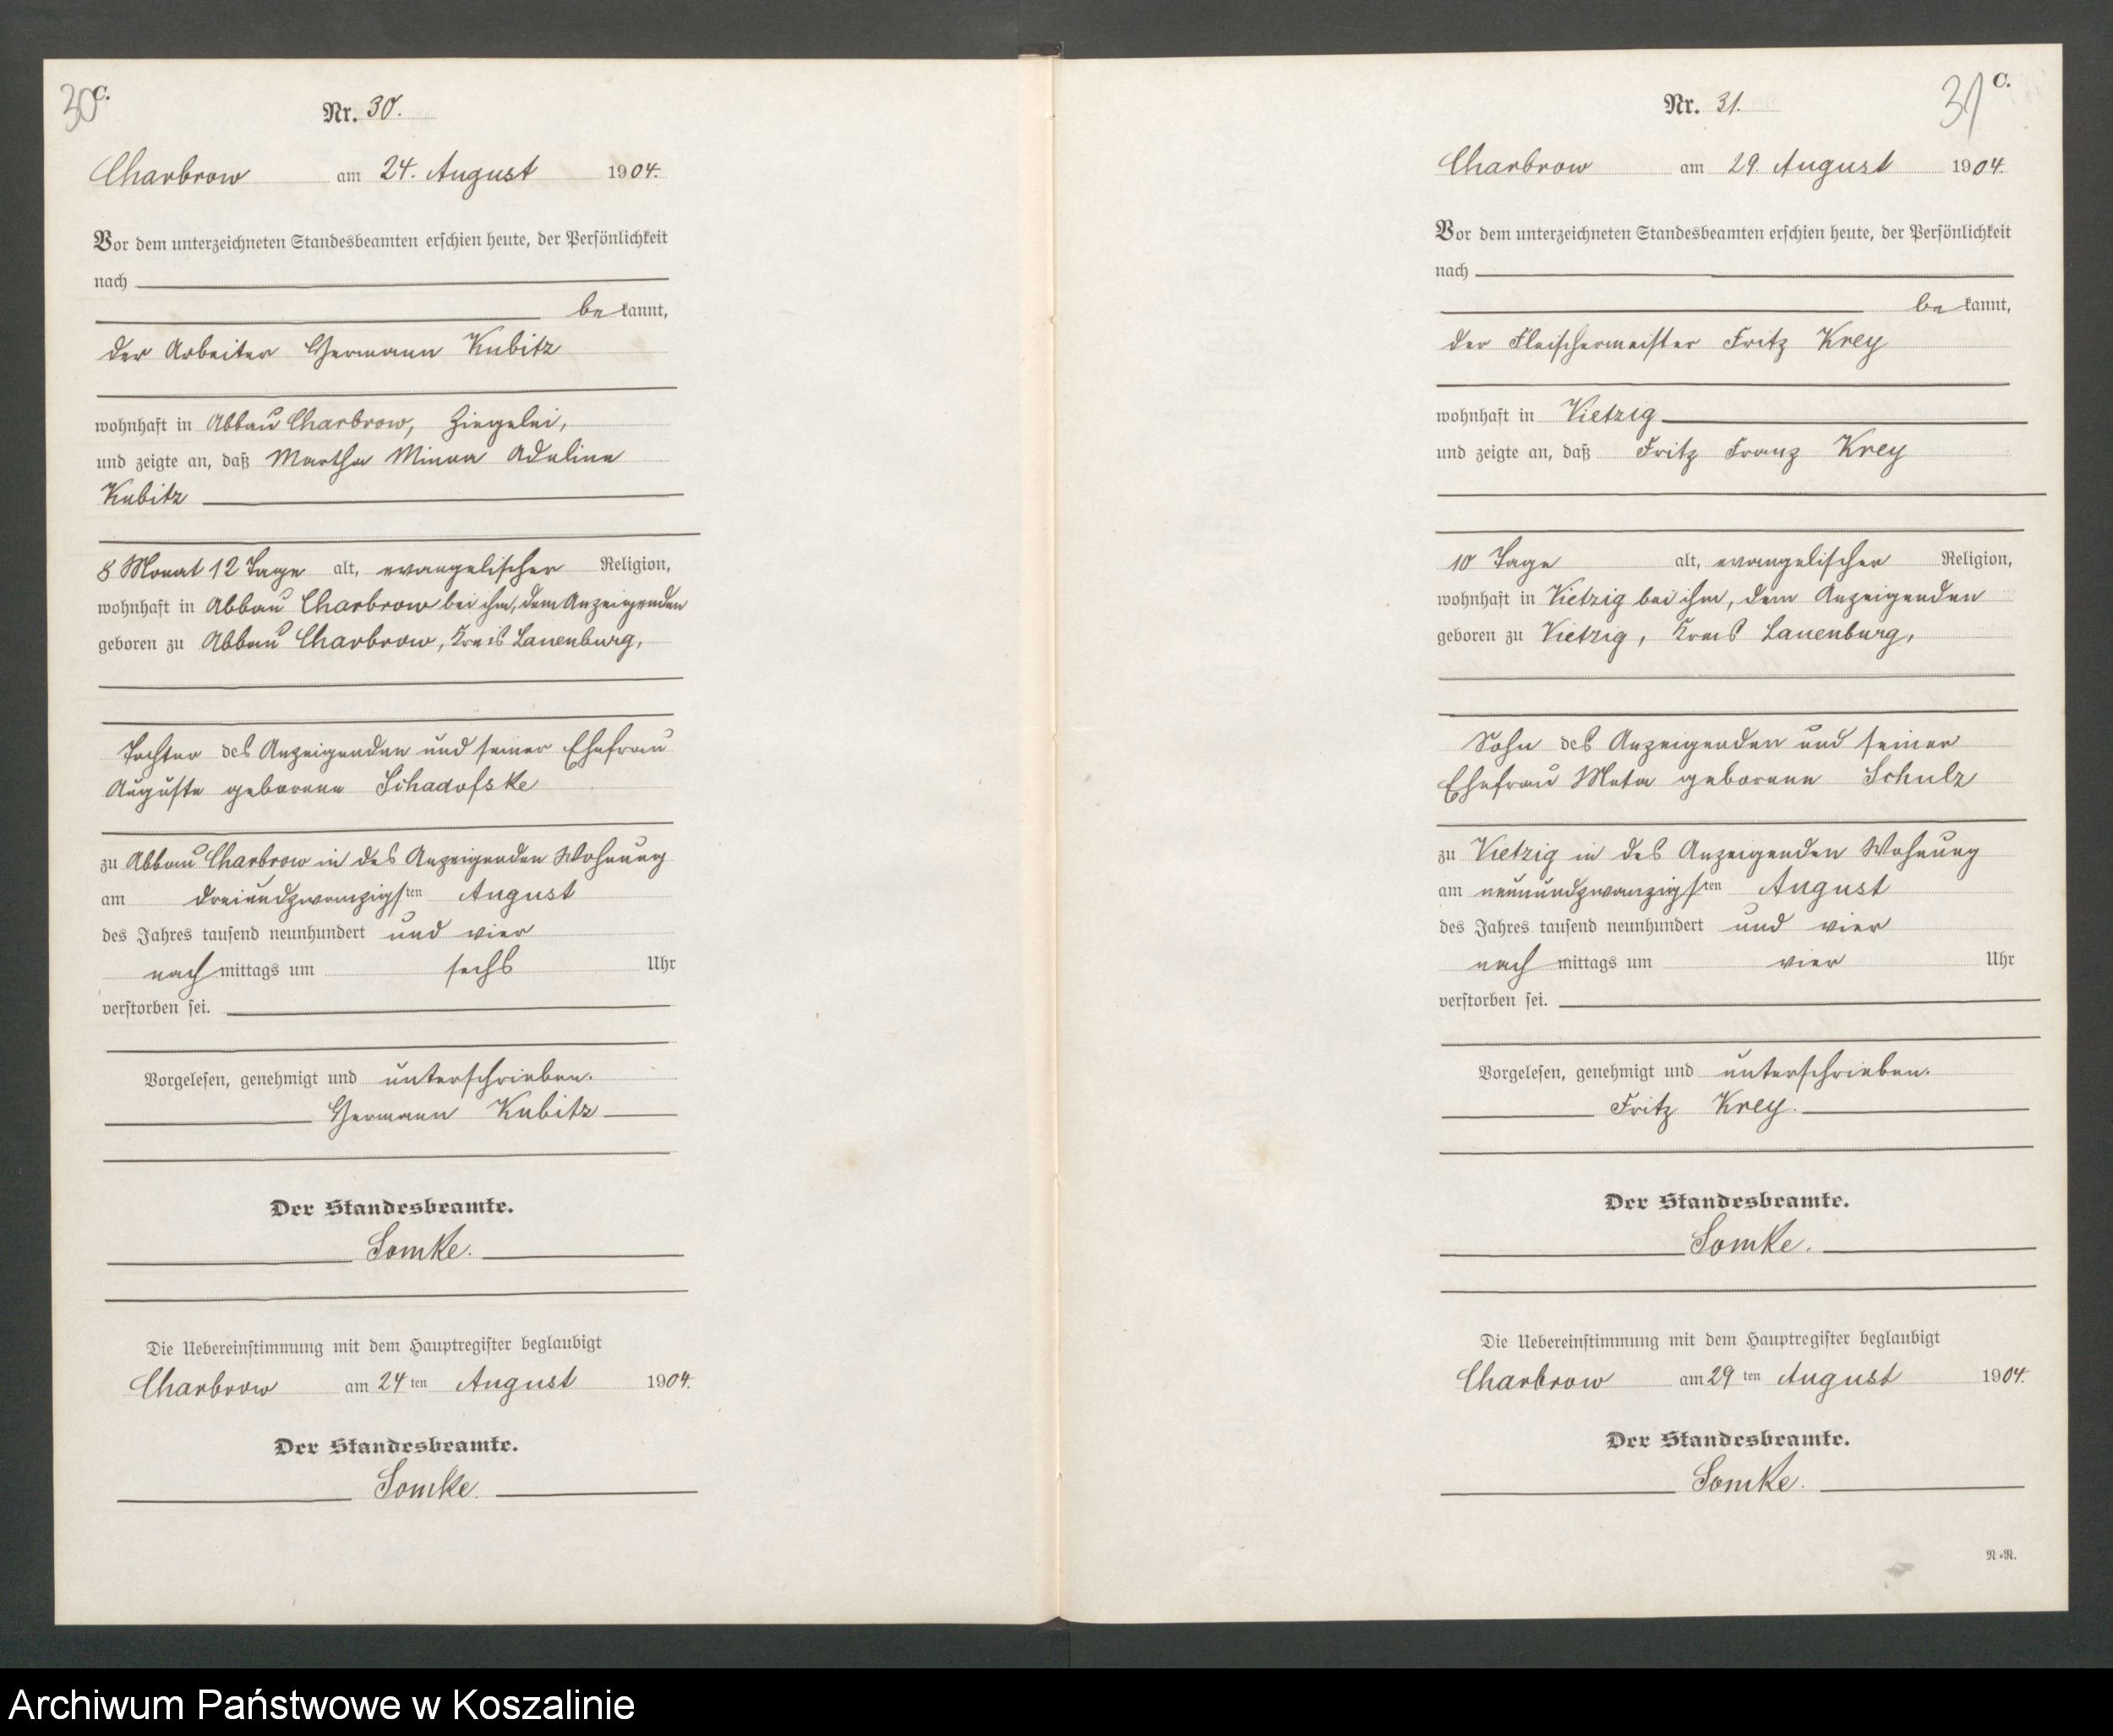 30 C.
Nr. 30.
Charbrow am 24. August 1904.
Vor dem unterzeichneten Standesbeamten erschien heute, der Persönlichkeit
nach
be kannt,
der Arbeiter Hermann Kubitz
wohnhaft in Abbau Charbrow, Ziegelei,
und zeigte an, daß Martha Minna Adeline
Kubitz
8 Monat 12 Tage alt, evangelischer Religion,
wohnhaft in Abbau Charbrow bei ihm, dem Anzeigenden
geboren zu Abbau Charbrow, Kreis Lauenburg,
Tochter des Anzeigenden und seiner Ehefrau
Auguste geborene Schadofske
zu Abbau Charbrow in des Anzeigenden Wohnung
am dreiundzwanzigsten August
des Jahres tausend neunhundert und vier
nach mittags um sechs Uhr
verstorben sei.
Vorgelesen, genehmigt und unterschrieben.
Hermann Kubitz
Der Standesbeamte.
Lomke.
Die Uebereinstimmung mit dem Hauptregister beglaubigt
Charbrow am 24 ten August 1904.
Der Standesbeamte.
Lomke.
31 C.
Nr. 31.
Charbrow am 29. August 1904.
Vor dem unterzeichneten Standesbeamten erschien heute, der Persönlichkeit
nach
be kannt,
der Fleischermeister Fritz Krey
wohnhaft in Vietzig
und zeigte an, daß Fritz Franz Krey
10 Tage alt, evangelischer Religion,
wohnhaft in Vietzig bei ihm, dem Anzeigenden
geboren zu Vietzig, Kreis Lauenburg,
Sohn des Anzeigenden und seiner
Ehefrau Meta geborene Schulz
zu Vietzig in des Anzeigenden Wohnung
am neunundzwanzigsten August
des Jahres tausend neunhundert und vier
nach mittags um vier Uhr
verstorben sei.
Vorgelesen, genehmigt und unterschrieben.
Fritz Krey.
Der Standesbeamte.
Lomke.
Die Uebereinstimmung mit dem Hauptregister beglaubigt
Charbrow am 29 ten August 1904.
Der Standesbeamte.
Lomke.
N.R.
Archiwum Państwowe w Koszalinie